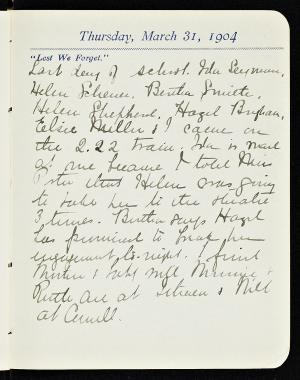 Thursday, March 31, 1904
"Lest We Forget."
Last day of school. Ida Seymour,
Helen Scheuer. Bertha Smith.
Helen Shepherd. Hazel Brigham,
Elsie Miller & I came on
the 2.22 train. Ida is mad
at me because I told Miss
that Helen was going
to take her to the theatre
3 times. Bertha says Hazel
has promised to break her
engagement to-night.
& Minnie &
Ruth are at Ithaca & Will
at Cornell.